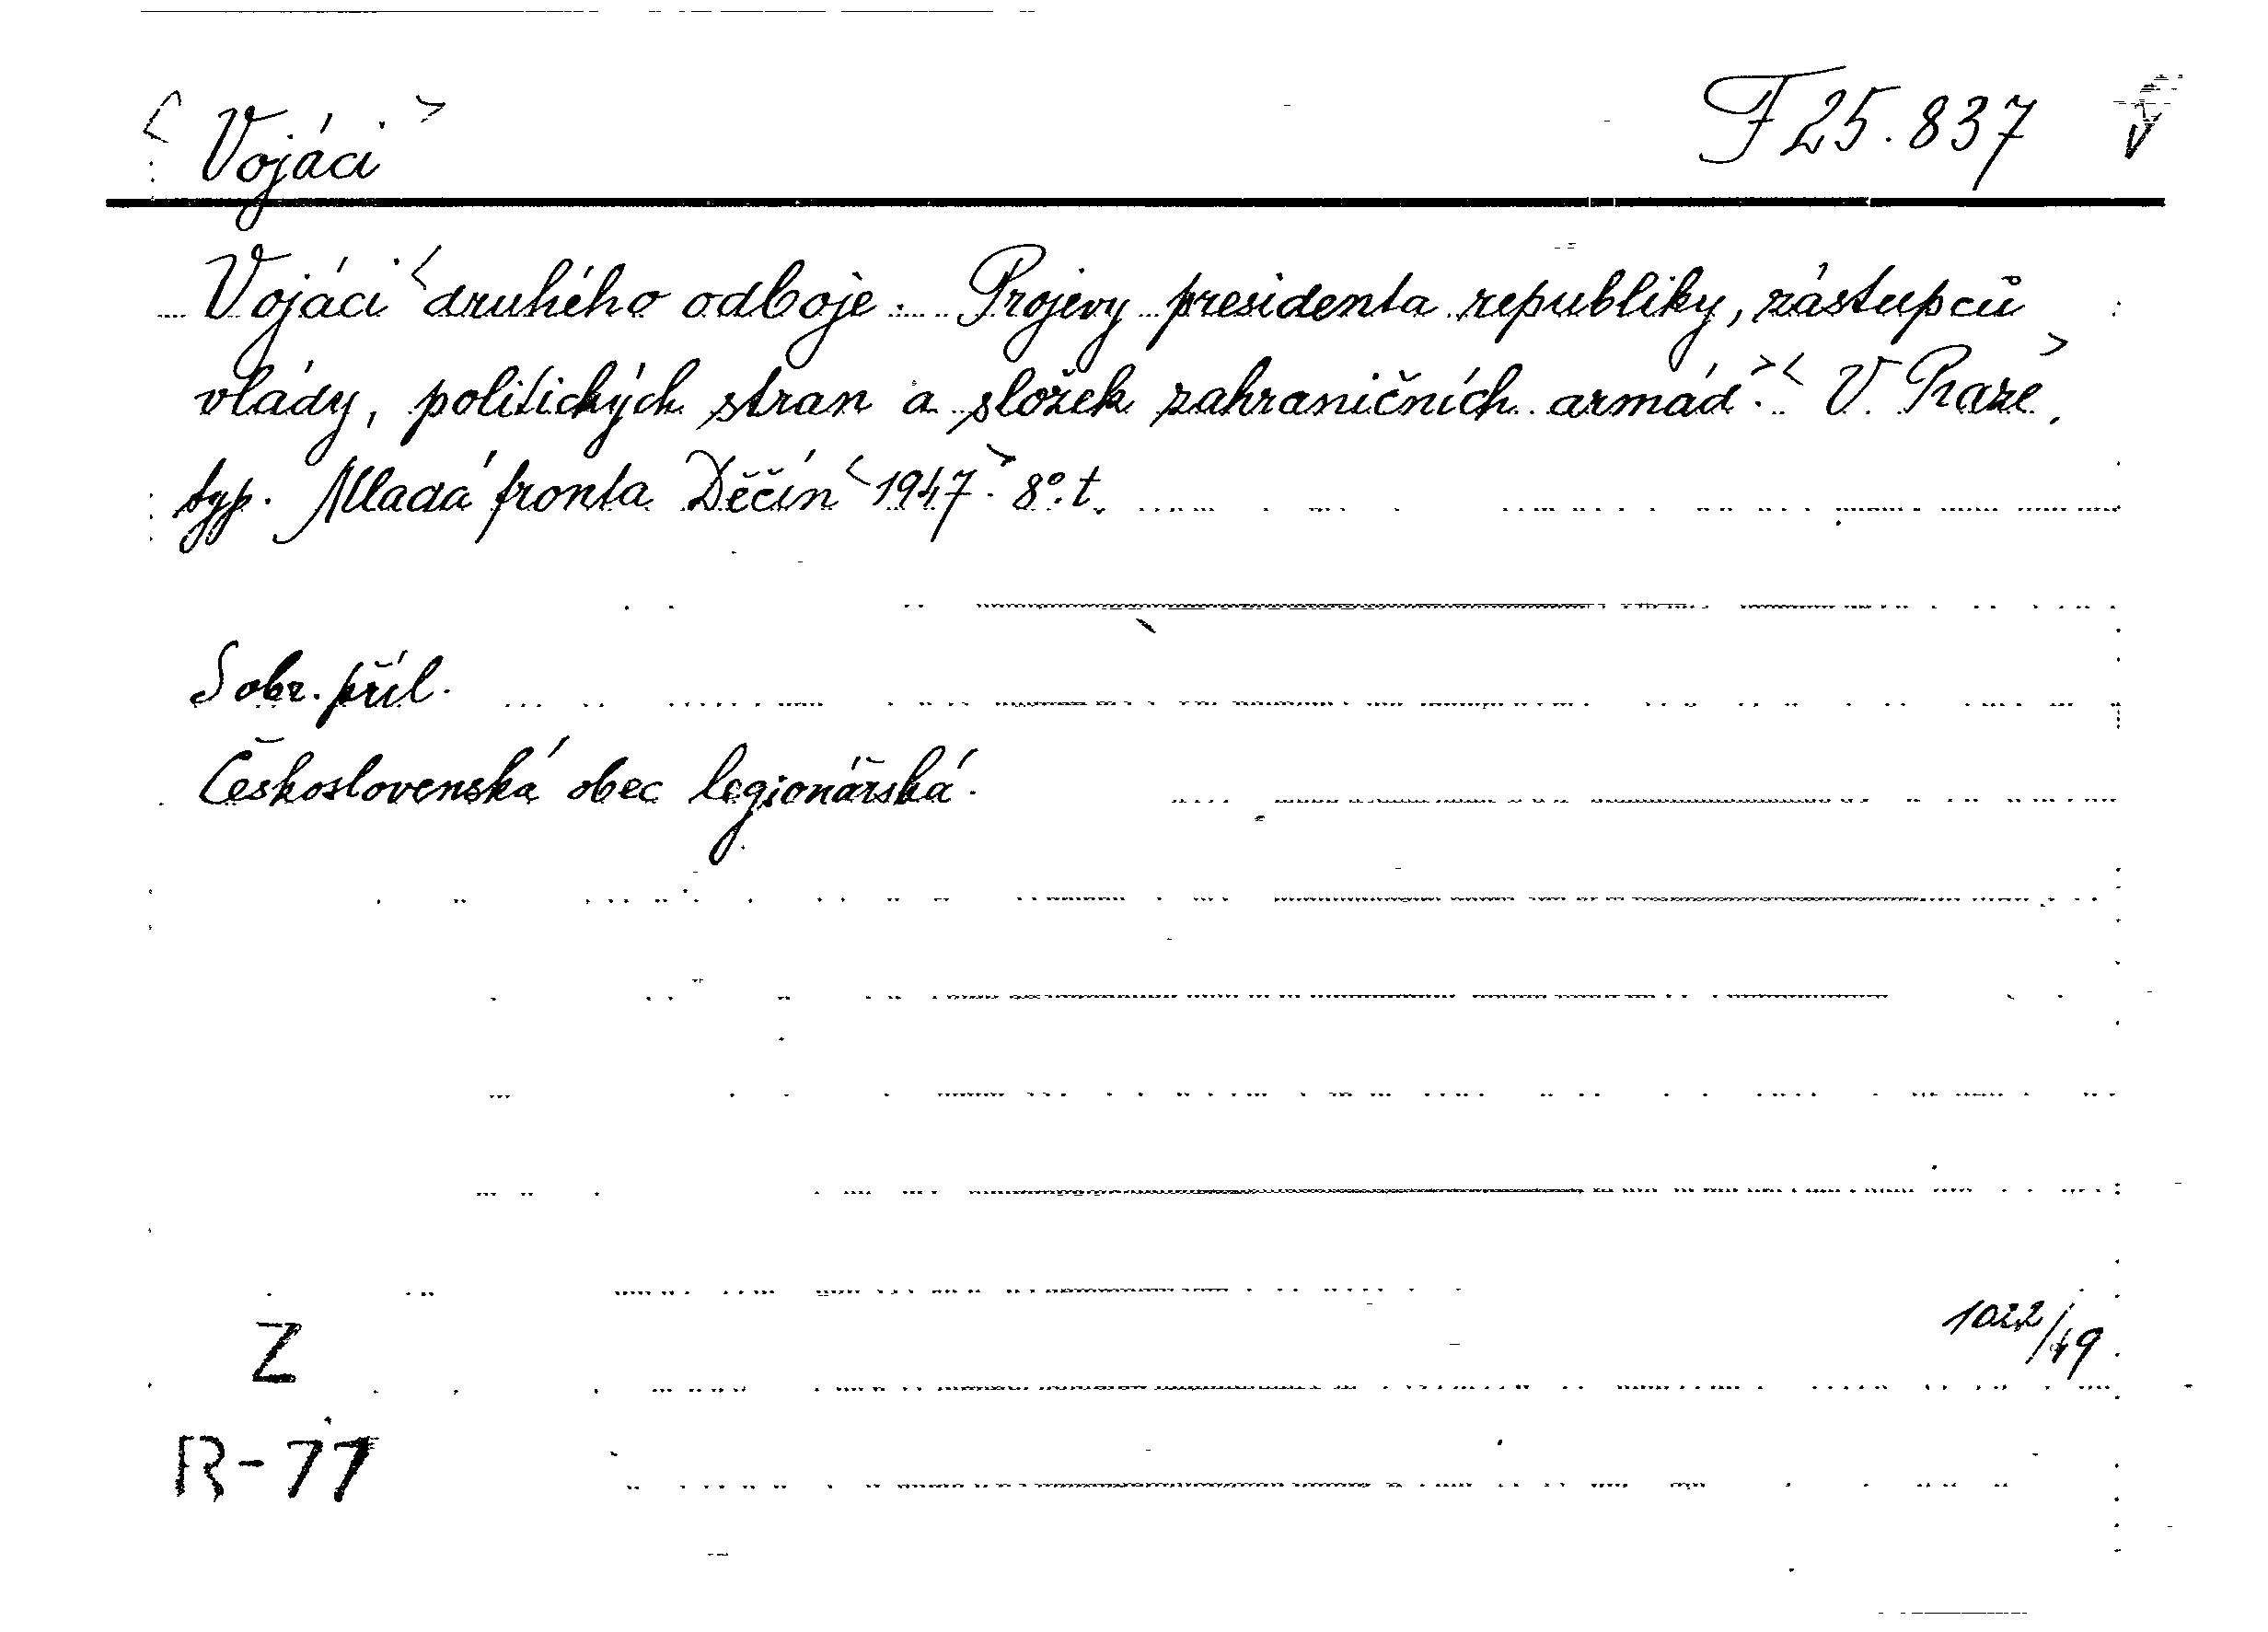 < Vojáci > F 25.837 V
Vojáci < druhého odboje. Projevy presidenta republiky, zástupců
vlády, politických stran a složek zahraničních armád. > < V Praze >,
typ. Mladá fronta Děčín < 1947. > 8°. t.
S obr. příl.
Československá obec legionářská.
1022/49
Z
R-77